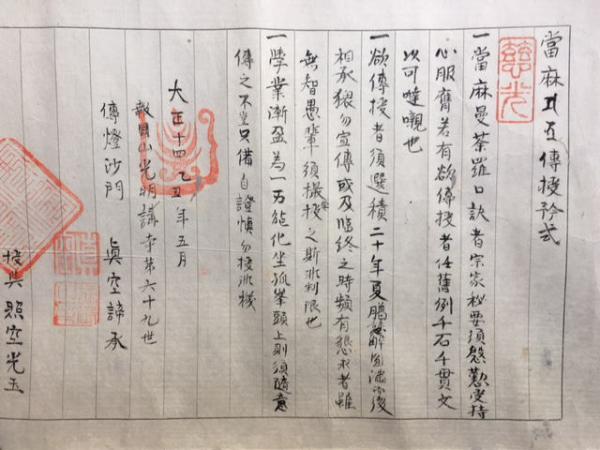 當麻 五傳授矜式
慈光
一當麻曼荼羅口訣者宗家秘要須慇懃受持
心服膺若有欲傳授者任舊例千石千貫文
以可噠嚫也
一欲傳授者須選積二十年夏臈解 後
相承猥勿宣傳或及臨終之時頻有懇求者雖
無智愚輩須撮授之斯非制限也
一學業漸盈為一方能化坐孤峯頭上則須隨意
傳之不 只備自證慎勿授非機
大正十四乙丑年五月
報國山光明講寺第六十九世
傳燈沙門 眞空諦承
授與 照空光玉